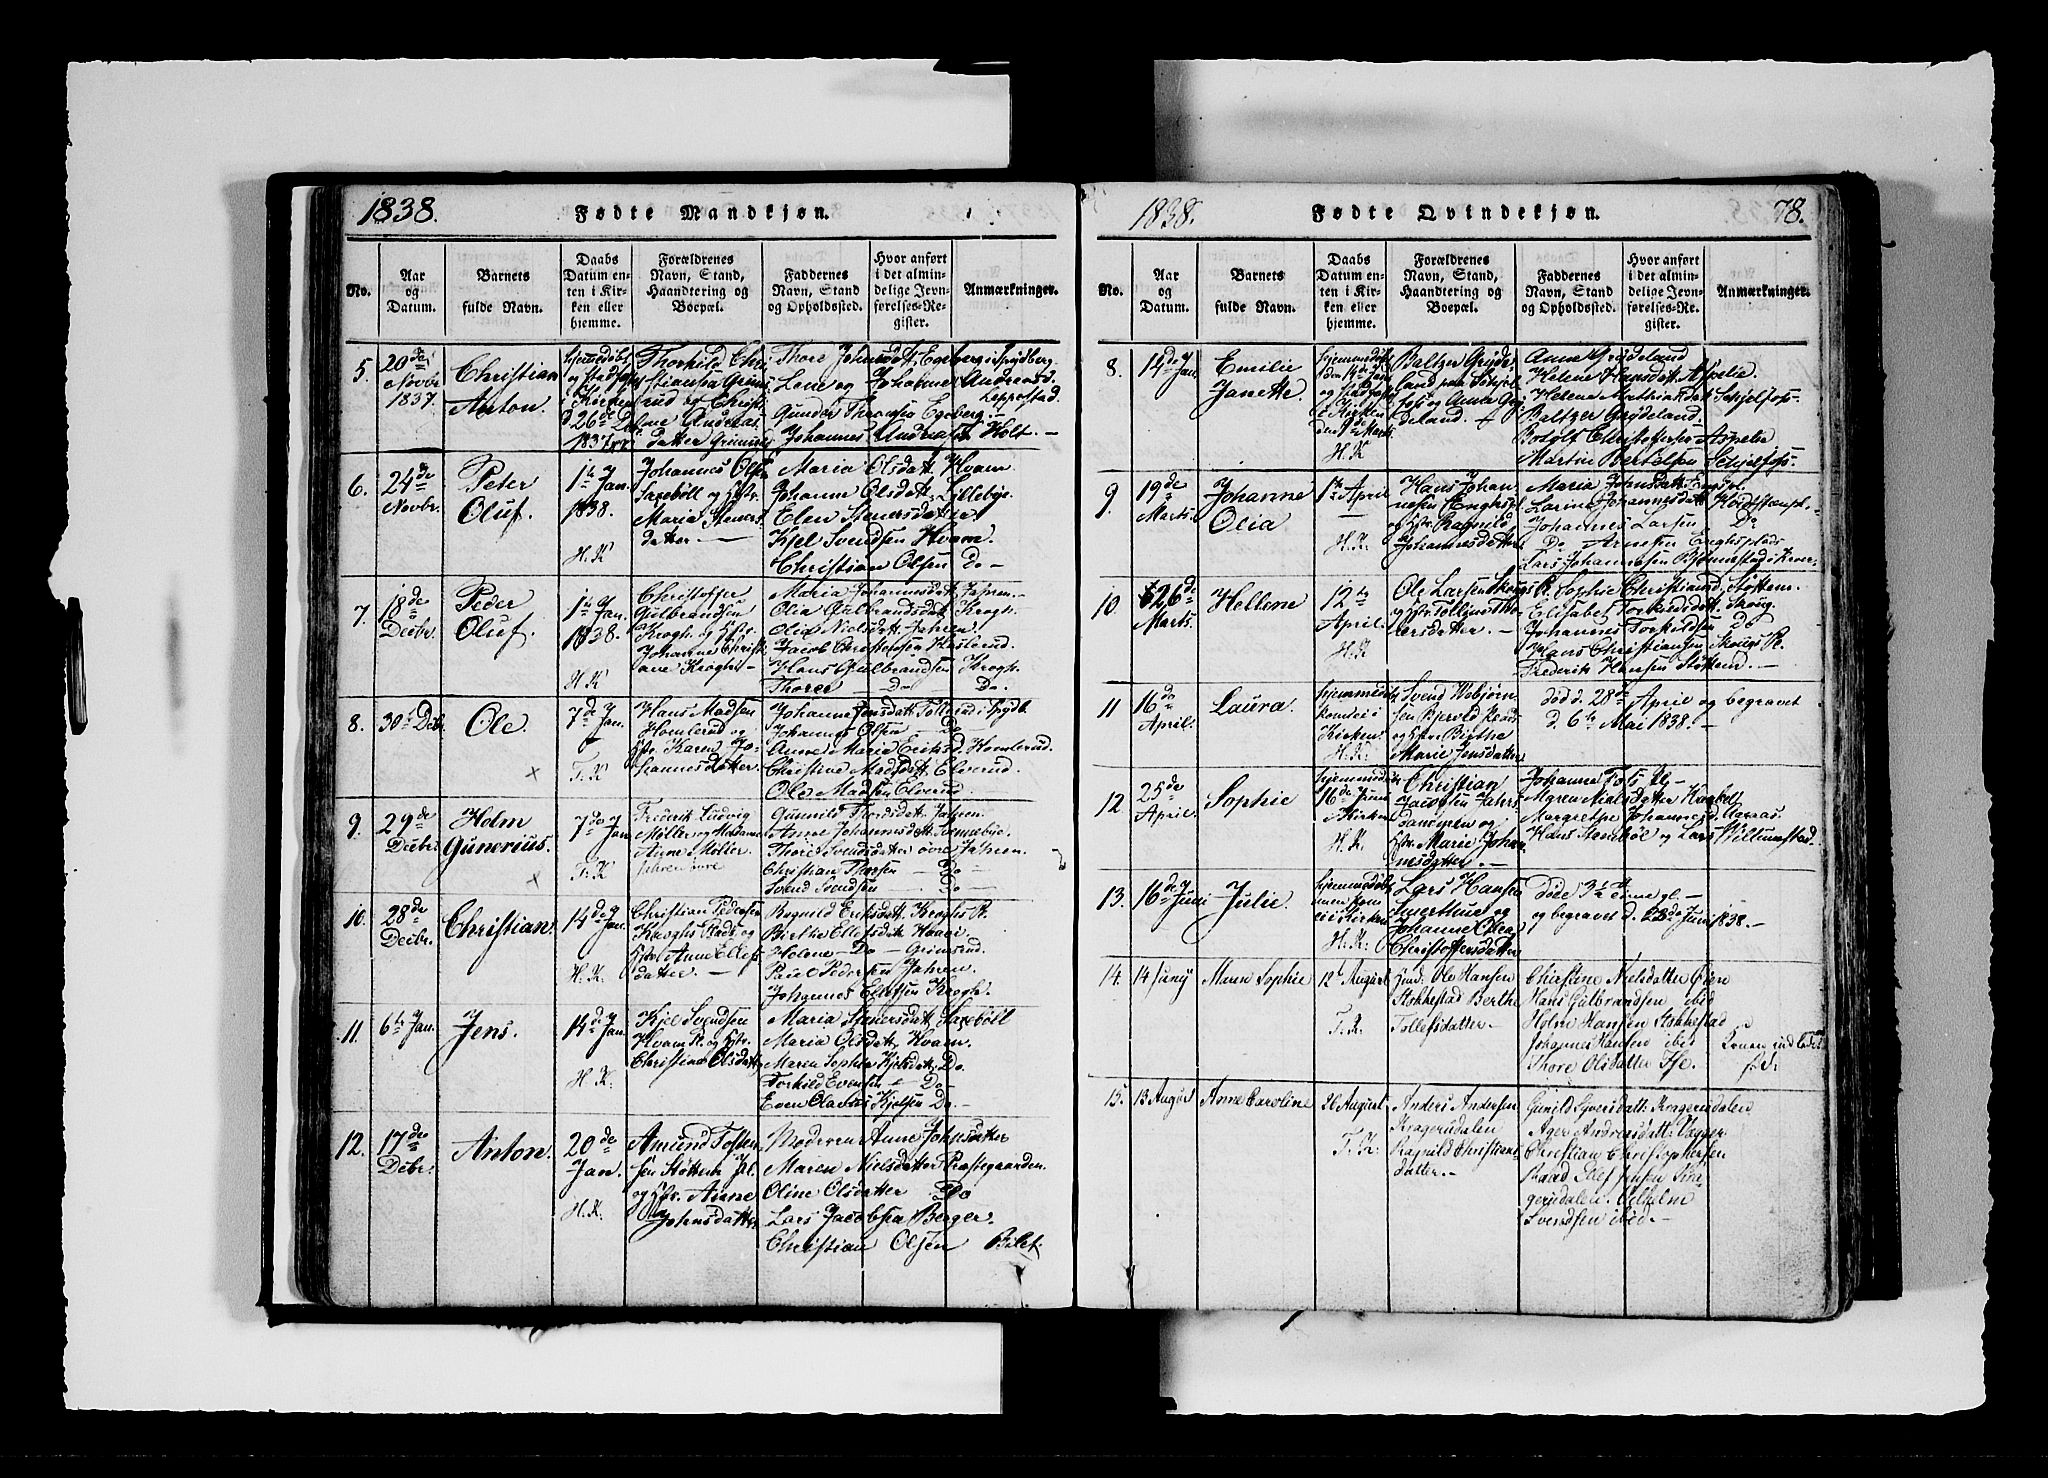 1838.
Fødte Mandkjøn.
No.
Aar
og
Datum.
Barnets
fulde Navn.
Daabs
Datum en-
ten i Kir-
ken eller
hjemme.
Forældrenes
Navn, Stand,
Haandtering og
Boepæl.
Faddernes
Navn, Stand
og Opholdssted.
Hvor anført
i det almin-
delige Jevn-
førelses-Re-
gister.
Anmærkninger.
5.
20de
Novbr.
1837.
Christian
Anton.
hjemmedøbt
i Kirken
d 26de De
1837
Thorkild Chri
stiansen Grims
rud og Christi
ne Andreas
datter
Thore Johnsdatt. Egeberg i Spydberg
Lene og Johanne Andreasd.
Leppestad.
Gunder Thomsen Egeberg. —
Johannes Andreasen Holt. —
6.
24de
Novbr.
Peter
Oluf.
1te Jan.
1838.
H. K
Johannes Olsen
Saxebøll og Hstr.
Maria Steners
datter —
Maria Olsdatt. Hvam
Johanne Olsdatt. Lillebye.
Elen Stenersdatter
Kjel Svendsen Hvam.
Christian Olsen Do —
7.
18de
Decbr.
Peder
Oluf.
1te Jan.
1838.
H. K
Christoffer
Gulbrandsen
Krogh og Hstr.
Johanne Christi
ane Krogh
Maria Johannesdatt. Jahren.
Olia Gulbrandsdatt. Krogh.
Olia Nielsdatt. Jahren.
Jacob Christensen Haslerud.
Hans Gulbrandsen Krogh.
Thorer — Do — Do.
8.
30te Decbr.
Ole.
7de Jan.
F. K
Hans Madsen
Homlerud og
Hstr. Karen Jo-
hannesdatter.
Johanne Jensdatt. Tollerud i Spydb.
Johannes Olsen — Do —
Anne Maria Eriksd. Homlerud.
Christine Madsdatt. Elverud.
Ole Madsen Elverud.
9.
29de
Decbr.
Holm
Gunerius.
7de Jan
F. K
Frederik Ludvig
Møller og Madame
Anne Møller.
Jahren øvre
Gunnild Thorsdatt. Jahren.
Anne Johannsdatt. Svennebye.
Thore Svendsdatter øvre Jahren.
Christian Thorsen — Do —
Svend Svendsen — Do —
10.
28de
Decbr.
Christian.
14de Jan.
H. K:
Christian Pedersen
Kroghs Plads og
Hstr. Anne Ellefs
datter. —
Ragnild Eriksdatt. Kroghs Pl.
Birthe Ellefsdatt. Haaer.
Helene — Do — Grimsrud.
Paul Pedersen Jahren.
Johannes Ellefsen Krogh.
11.
6te Jan.
Jens.
14de Jan.
H. K:
Kjel Svendsen
Hvam Pl. og Hstr.
Christine Olsdatt.
Maria Stenersdatt. Saxebøll
Maria Olsdatt. Hvam.
Maren Sophie Kjelsdatt. Do.
Torkild Evensen — Do —
Even Olavus Kjelsen Do. —
12.
17de
Decbr.
Anton.
20de
Jan.
H. K:
Amund Tosten
sen Støttum Pl.
og Hstr. Anne
Johnsdatter
Moderen Anne Johnsdatter
Maren Nielsdatter Præstegaarden.
Oline Olsdatter Do
Lars Jacobsen Berger.
Christian Olsen Bilet.
1838.
Fødte Qvindekjøn.
78.
No.
Aar
og
Datum.
Barnets
fulde Navn.
Daabs
Datum en-
ten i Kir-
ken eller
hjemme.
Forældrenes
Navn, Stand,
Haandtering og
Boepæl.
Faddernes
Navn, Stand
og Opholdssted.
Hvor anført
i det almin-
delige Jevn-
førelses-Re-
gister.
Anmærkninger.
8.
14de Jan.
Emilie
Janette.
hjemmedøbt
i Kirken
H. K
Baltzer Grøde-
land paa Skjel-
fos og Anne Grø-
deland. —
Anne Grødeland
Helene Hansdatt. Aspelie.
Helene Mathiasdatt. Skjelfos.
Baltzer Grødeland.
Botolf Christoffersen Aspelie
Martin Bertelsen Skjelfos.
9.
19de
Marts.
Johanne
Olia
1te April
H. K.
Hans Johan
nesen Enghspl.
og Hstr. Ragnild
Johannesdatter
Maria Johnsdatt.
Larine Johannesdatt.
Johannes Larsen Do
Do Arnesen Enghsplads
Lars Johannesen
10.
26de
Marts.
Hellene
12te
April.
H. K
Ole Larsen Skougs Pl.
og Hstr. Tolline Tho
rersdatter. —
Sophie Christiansd. Støttum.
Elisabet Torkildsdatt. Skoug.
Johannes Torkildsen Do
Hans Christiansen Skougs Pl.
Frederik Hansen Støttum. —
11
16de
April.
Laura
hjemmedøbt
i
Kirken
H. K:
Svend Webjørn-
sen
og Hstr. Birthe
Marie Jensdatter
død d. 28de April og begravet
d. 6te Mai 1838. —
12.
25de
April.
Sophie
hjemmedøbt
16de Juni
i Kirken
H. K.
Christian
Jacobsen
og
Hstr. Marie Johan
nesdatter. —
Johanne
Margrethe Johannesd. Aaraas.
Hans Stensbøl og Lars Villumstad.
13.
16de Juni
Julie
hjemmedøbt
i Kirken
H. K:
Lars Hansen
og
Johanne Olea
Christoffersdatter
Døde
og begravet d. 23de Juni 1838. —
14.
14 Juny
Maren Sophie
12te August
F. K.
Ole Hansen
Stokkestad Berthe
Tollefsdatter. —
Christine Nielsdatter Øien
Hans Gulbrandsen ibid
Holm Hansen Stokkestad
Johannes Hansen ibid
Thore Olsdatter
Konen indledet
15.
13 August
Anne Caroline
26 August
F. K:
Anders Andersen
Kragerudalen
Ragnild Christians
datter. —
Gunild Syversdatt. Kragerudalen
Ager Andreasdatt.
Christian Christophersen
Raaed Elef Jensen Kra-
gerudalen. Vilhelm
Svendsen ibid. —